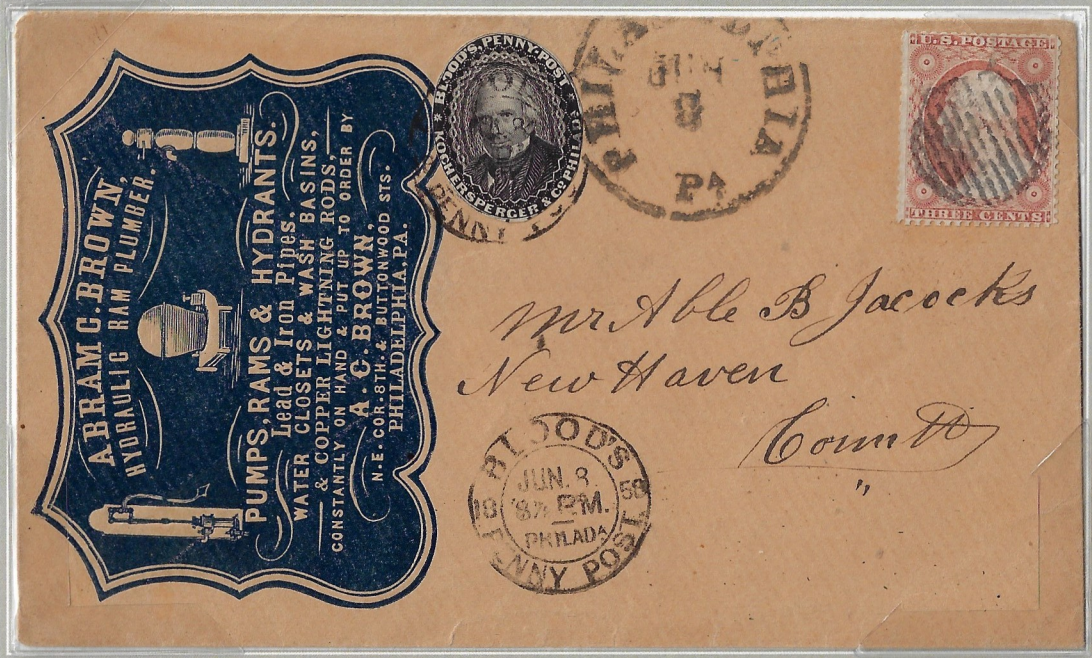 ABRAM C. BROWN,
HYDRAULIC RAM PLUMBER.
PUMPS, RAMS & HYDRANTS.
Lead & Iron Pipes.
WATER CLOSETS & WASH BASINS,
& COPPER LIGHTNING RODS,
CONSTANTLY ON HAND & PUT UP TO ORDER BY
A. C. BROWN,
N.E. COR. 8TH. & BUTTONWOOD STS.
PHILADELPHIA, PA.
BLOOD'S PENNY POST
KOCHERSPERGER & CO PHILA
PENNY
PHILADELPHIA
JUN
8
PA
U.S. POSTAGE
THREE CENTS
Mr Able B Jacocks
New Haven
Conn
"
BLOOD'S
JUN. 8
18 58
PHILADA
PENNY POST